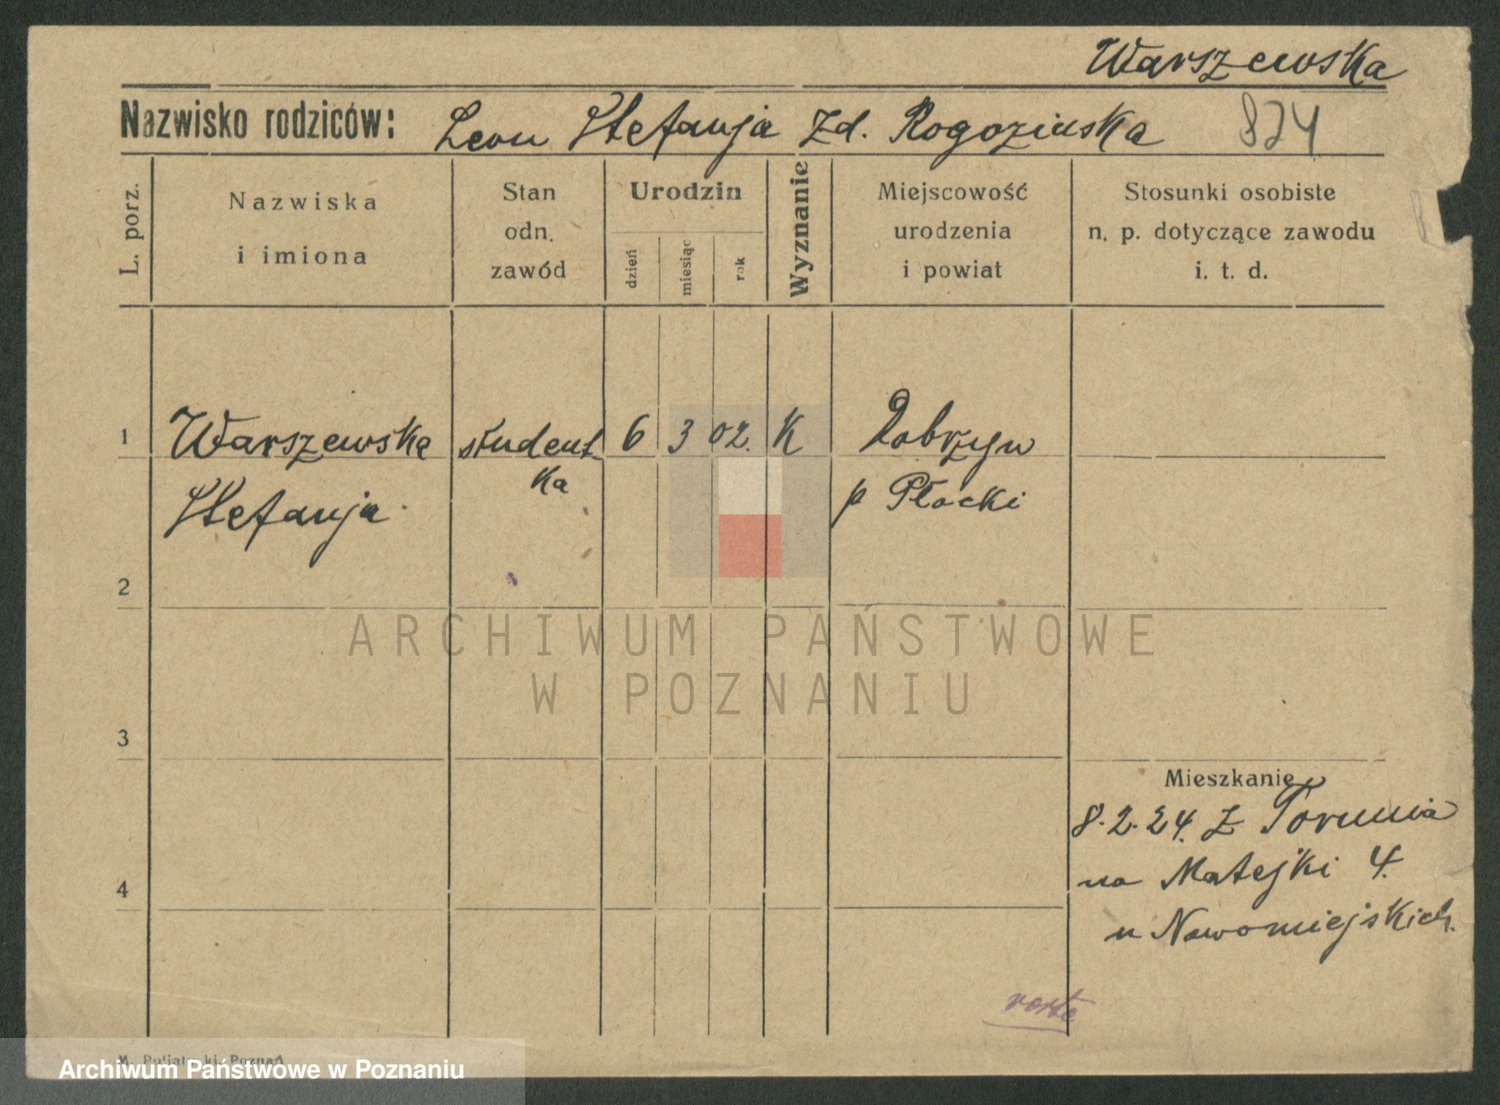 Warszewska
Nazwisko rodziców: Leon Stefanja zd. Rogozinska 824
L. porz.
Nazwiska
i imiona
Stan
odn.
zawód
Urodzin
dzień
miesiąc
rok
Wyznanie
Miejscowość
urodzenia
i powiat
Stosunki osobiste
n. p. dotyczące zawodu
i. t. d.
1 Warszewska student- 6 3 02. K Dobrzyn
ka
Stefanja p Płocki
2
3
4
Mieszkanie
8.2.24. z Torunia
na Matejki 4.
u Nowomiejskich.
M. Poznań
ARCHIWUM PAŃSTWOWE
W POZNANIU
Archiwum Państwowe w Poznaniu